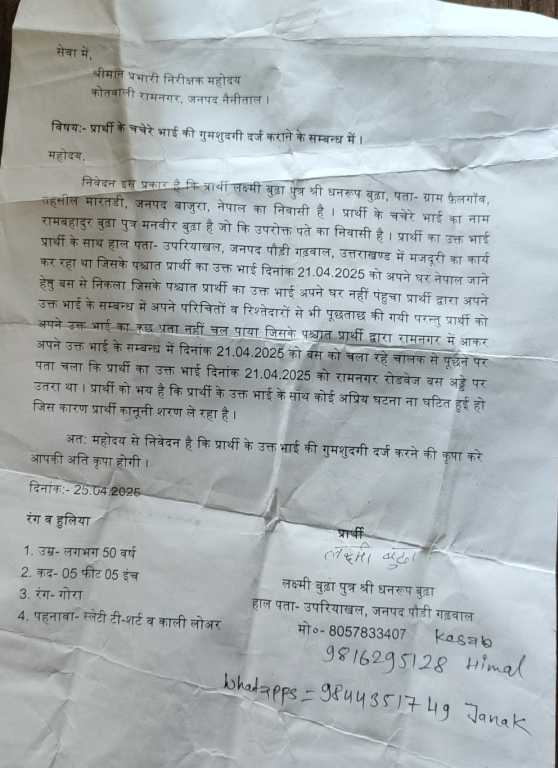 सेवा में,
श्रीमान प्रभारी निरीक्षक महोदय
कोतवाली रामनगर, जनपद नैनीताल ।
विषयः- प्रार्थी के चचेरे भाई की गुमशुदगी दर्ज कराने के सम्बन्ध में ।
महोदय,
निवेदन इस प्रकार है कि प्रार्थी लक्ष्मी बुढा पुत्र श्री धनरूप बुढा, पता- ग्राम फैलगाँव,
तहसील मारतडी, जनपद बाजुरा, नेपाल का निवासी है । प्रार्थी के चचेरे भाई का नाम
रामबहादुर बुढा पुत्र मनवीर बुढा है जो कि उपरोक्त पते का निवासी है । प्रार्थी का उक्त भाई
प्रार्थी के साथ हाल पता- उपरियाखल, जनपद पौड़ी गढ़वाल, उत्तराखण्ड में मजदूरी का कार्य
कर रहा था जिसके पश्चात प्रार्थी का उक्त भाई दिनांक 21.04.2025 को अपने घर नेपाल जाने
हेतु बस से निकला जिसके पश्चात प्रार्थी का उक्त भाई अपने घर नहीं पंहुचा प्रार्थी द्वारा अपने
उक्त भाई के सम्बन्ध में अपने परिचितों व रिश्तेदारों से भी पूछताछ की गयी परन्तु प्रार्थी को
अपने उक्त भाई का कुछ पता नहीं चल पाया जिसके पश्चात प्रार्थी द्वारा रामनगर में आकर
अपने उक्त भाई के सम्बन्ध में दिनांक 21.04.2025 को बस को चला रहे चालक से पूछने पर
पता चला कि प्रार्थी का उक्त भाई दिनांक 21.04.2025 को रामनगर रोडवेज बस अड्डे पर
उतरा था । प्रार्थी को भय है कि प्रार्थी के उक्त भाई के साथ कोई अप्रिय घटना ना घटित हुई हो
जिस कारण प्रार्थी कानूनी शरण ले रहा है ।
अतः महोदय से निवेदन है कि प्रार्थी के उक्त भाई की गुमशुदगी दर्ज करने की कृपा करे
आपकी अति कृपा होगी ।
दिनांकः- 25.04.2025
रंग व हुलिया
1. उम्र- लगभग 50 वर्ष
2. कद- 05 फीट 05 इंच
3. रंग- गोरा
4. पहनावा- स्लेटी टी-शर्ट व काली लोअर
प्रार्थी
लक्ष्मी बुढा
लक्ष्मी बुढा पुत्र श्री धनरूप बुढा
हाल पता- उपरियाखल, जनपद पौडी गढवाल
मो०- 8057833407 Kasab
9816295128 Himal
Whatapps = 9844351749 Janak